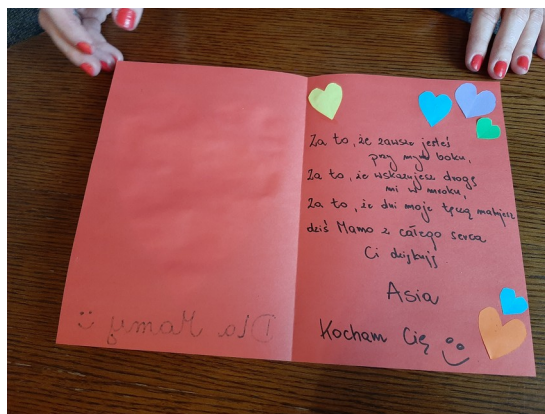 Za to, że zawsze jesteś
przy mym boku,
Za to, że wskazujesz drogę
mi w mroku,
Za to, że dni moje tęczą malujesz
dziś Mamo z całego serca
Ci dziękuję
Asia
Kocham Cię
Dla Mamy